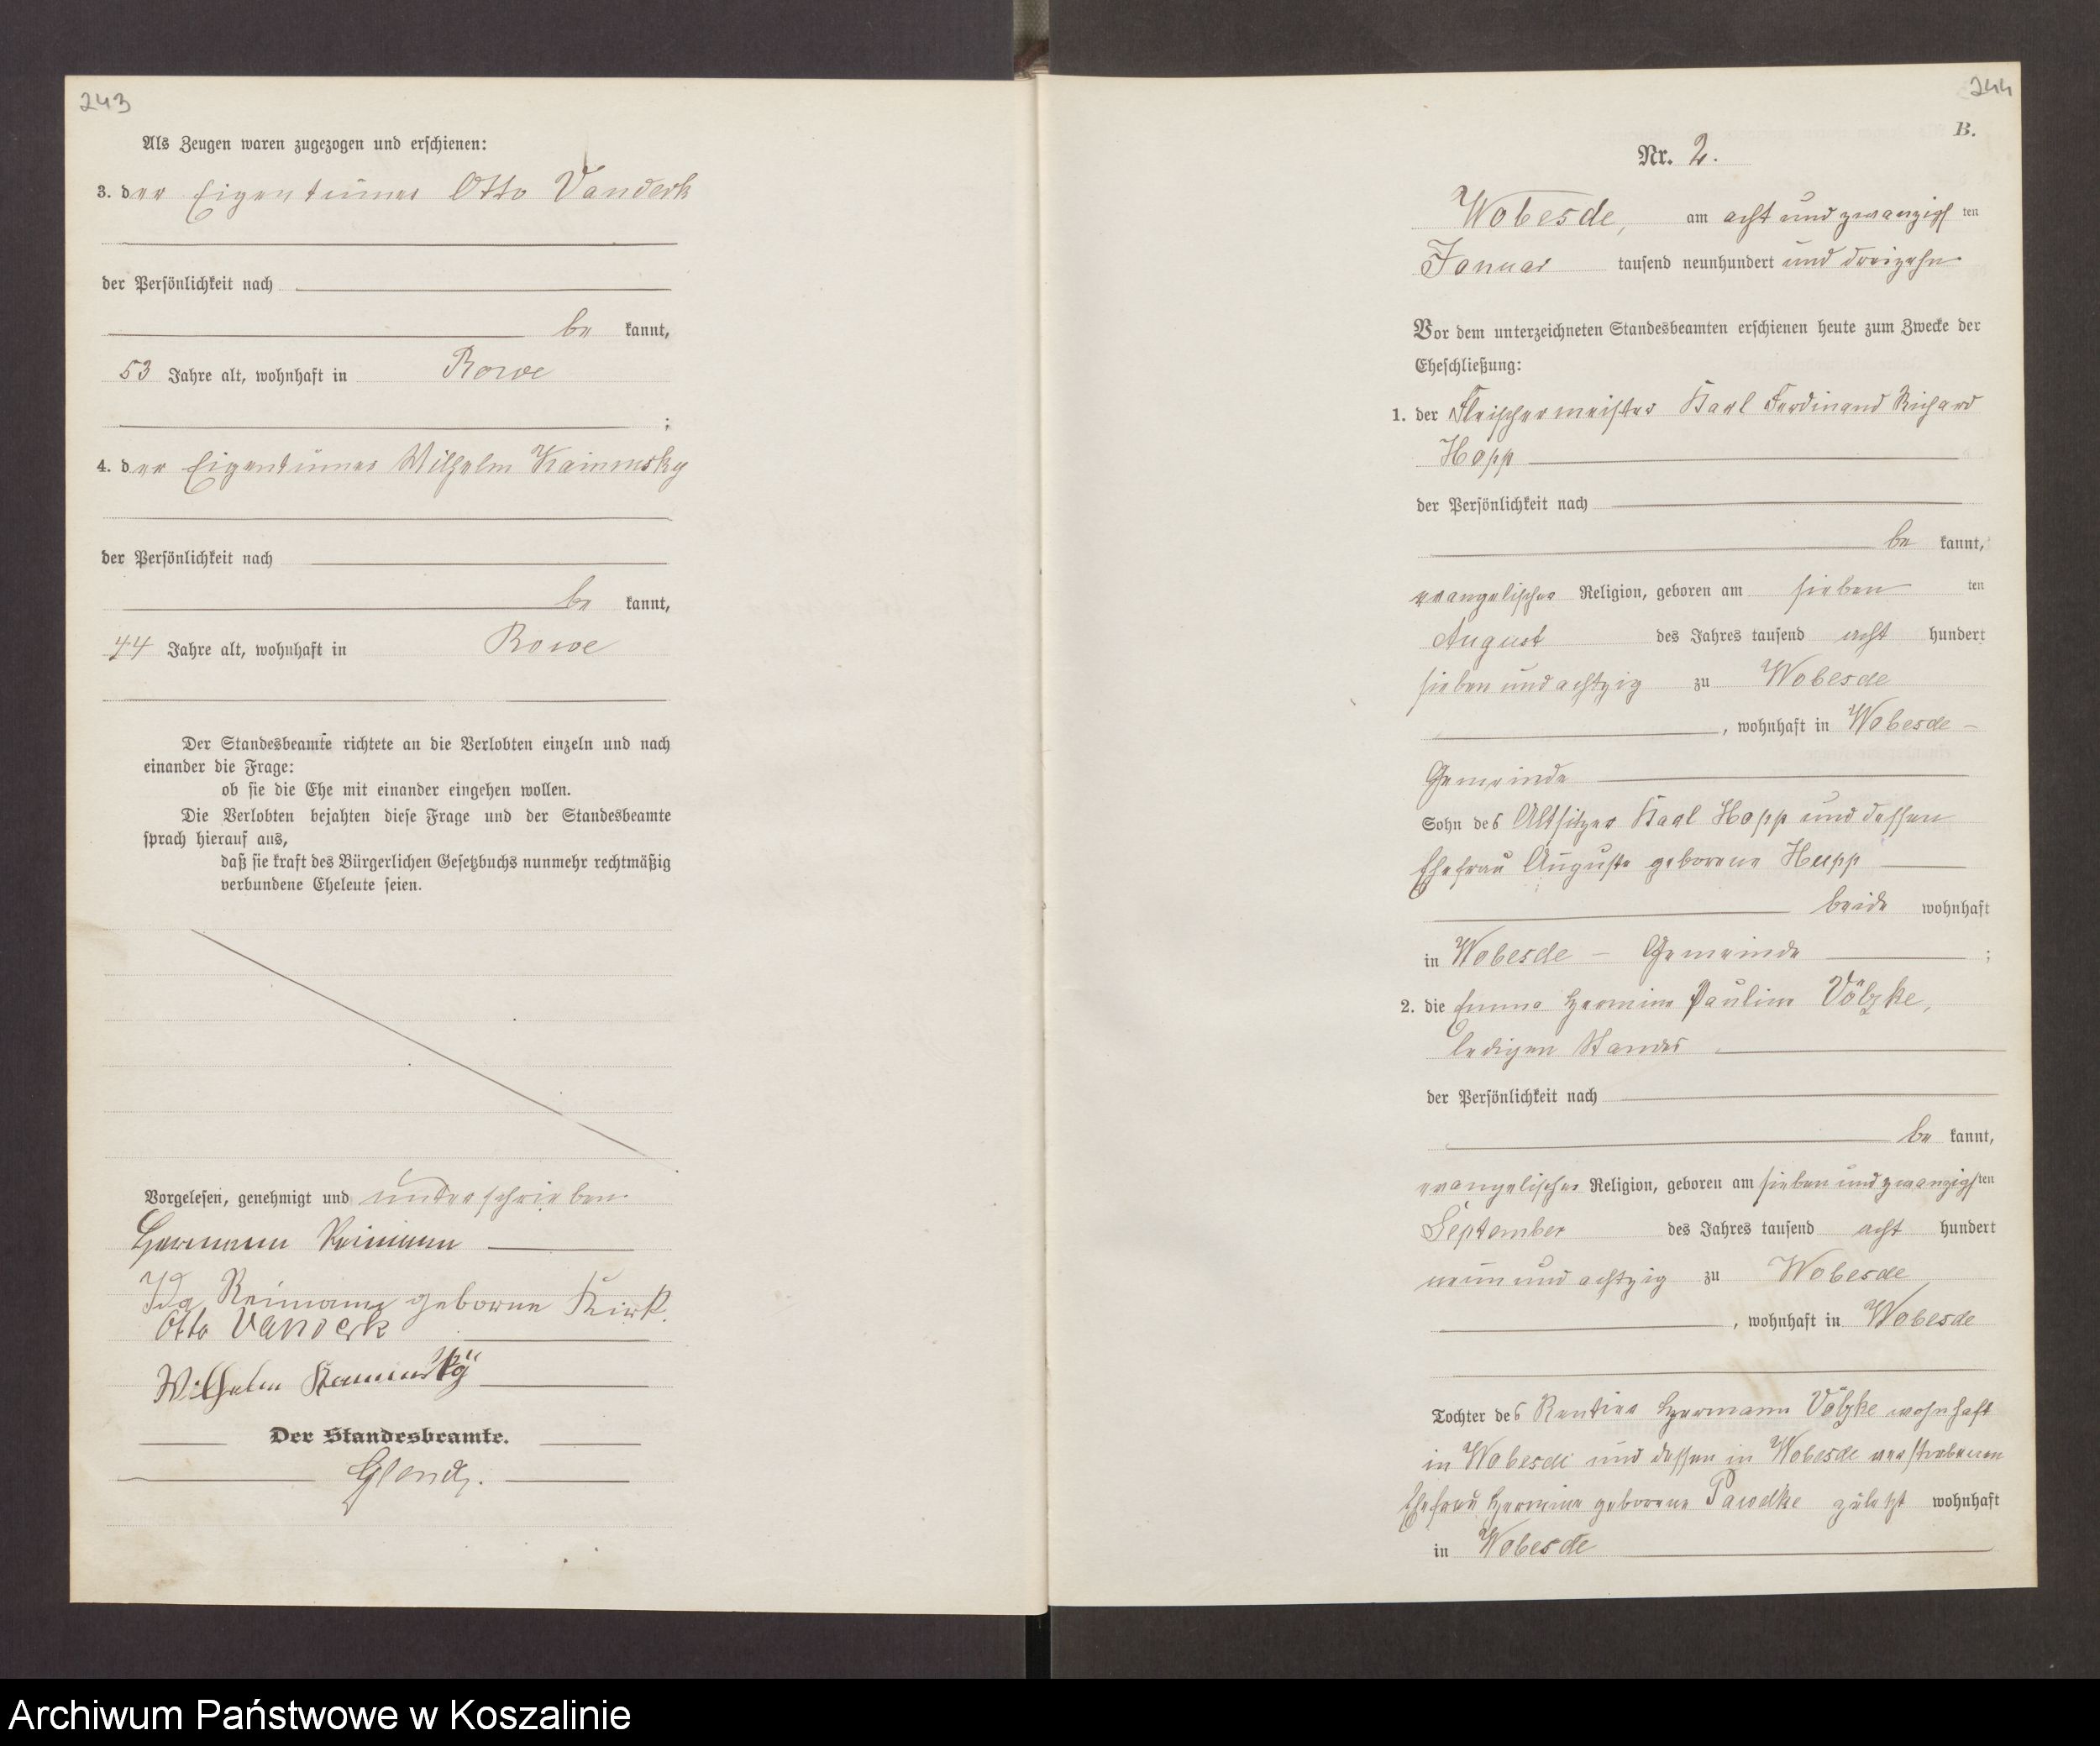 243
Als Zeugen waren zugezogen und erschienen:
3. der Eigentümer Otto Vanderk
der Persönlichkeit nach
be kannt,
53 Jahre alt, wohnhaft in Rowe
;
4. der Eigentümer Wilhelm Kaminsky
der Persönlichkeit nach
be kannt,
44 Jahre alt, wohnhaft in Rowe
Der Standesbeamte richtete an die Verlobten einzeln und nach
einander die Frage:
ob sie die Ehe mit einander eingehen wollen.
Die Verlobten bejahten diese Frage und der Standesbeamte
sprach hierauf aus,
daß sie kraft des Bürgerlichen Gesetzbuchs nunmehr rechtmäßig
verbundene Eheleute seien.
Vorgelesen, genehmigt und unterschrieben
Hermann Reimann
Ida Reimann geborne Kirk.
Otto Vanderk
Wilhelm Kaminsky
Der Standesbeamte.
244
B.
Nr. 2.
Wobesde, am acht und zwanzigsten
Januar tausend neunhundert und dreizehn
Vor dem unterzeichneten Standesbeamten erschienen heute zum Zwecke der
Eheschließung:
1. der Fleischermeister Karl Ferdinand Richard
Hopp
der Persönlichkeit nach
be kannt,
evangelischer Religion, geboren am sieben ten
August des Jahres tausend acht hundert
sieben und achtzig zu Wobesde
, wohnhaft in Wobesde –
Gemeinde
Sohn des Altsitzer Karl Hopp und dessen
Ehefrau Auguste geborene Hupp
beide wohnhaft
in Wobesde – Gemeinde ;
2. die Emma Hermine Pauline Völzke,
ledigen Standes
der Persönlichkeit nach
be kannt,
evangelischer Religion, geboren am sieben und zwanzigsten
September des Jahres tausend acht hundert
neun und achtzig zu Wobesde
, wohnhaft in Wobesde
Tochter des Rentier Hermann Völzke wohnhaft
in Wobesde und dessen in Wobesde verstorbenen
Ehefrau Hermine geborene Pawelke zuletzt wohnhaft
in Wobesde
Archiwum Państwowe w Koszalinie